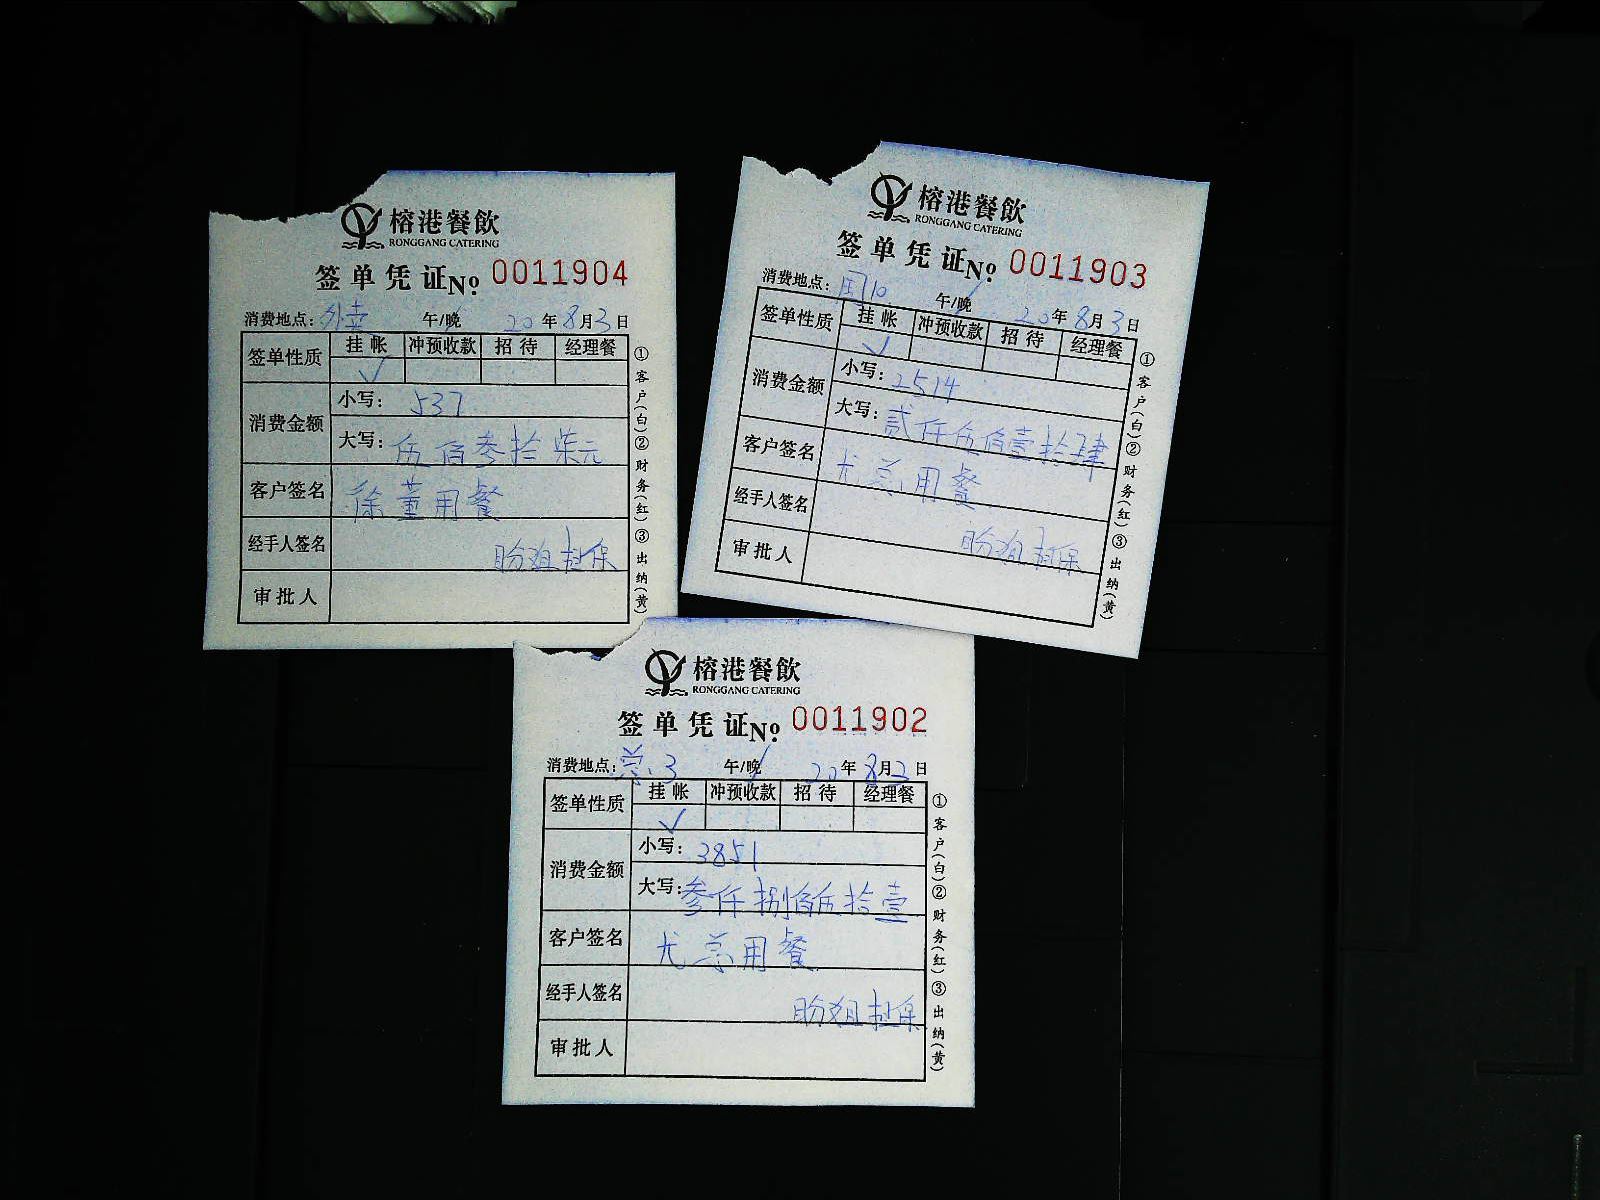 榕港餐飲
RONGGANG CATERING
签单凭证№ 0011904
消费地点：外卖 午/晚 20年8月3日
签单性质 挂帐 冲预收款 招待 经理餐
✓
消费金额
小写：537
大写：伍佰参拾柒元
客户签名 徐董用餐
经手人签名 盼姐担保
审批人
①客户（白）②财务（红）③出纳（黄）
榕港餐飲
RONGGANG CATERING
签单凭证№ 0011903
消费地点： 午/晚 20年8月3日
签单性质 挂帐 冲预收款 招待 经理餐
✓
消费金额
小写：2514
大写：贰仟伍佰壹拾肆
客户签名 尤总用餐
经手人签名 盼姐担保
审批人
①客户（白）②财务（红）③出纳（黄）
榕港餐飲
RONGGANG CATERING
签单凭证№ 0011902
消费地点： 3 午/晚 20年8月2日
签单性质 挂帐 冲预收款 招待 经理餐
✓
消费金额
小写：3851
大写：参仟捌佰伍拾壹
客户签名 尤总用餐
经手人签名 盼姐担保
审批人
①客户（白）②财务（红）③出纳（黄）